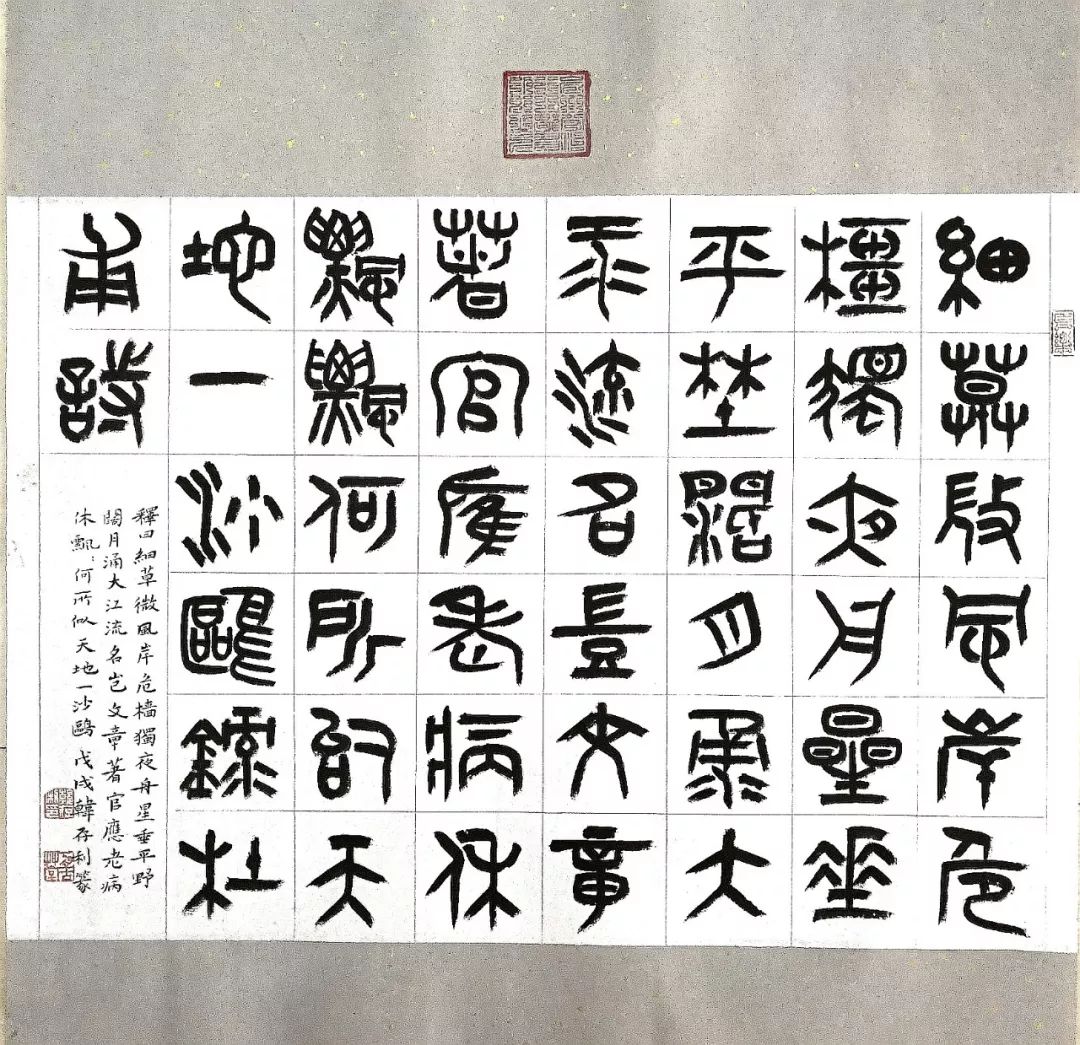 細草微風岸危
檣獨夜舟星垂
平野闊月涌大
江流名豈文章
著官應老病休
飄飄何所似天
地一沙鷗錄杜
甫詩
釋曰細草微風岸危檣獨夜舟星垂平野
闊月涌大江流名岂文章著官應老病
休飄〻何所似天地一沙鷗戊戌韓存利篆